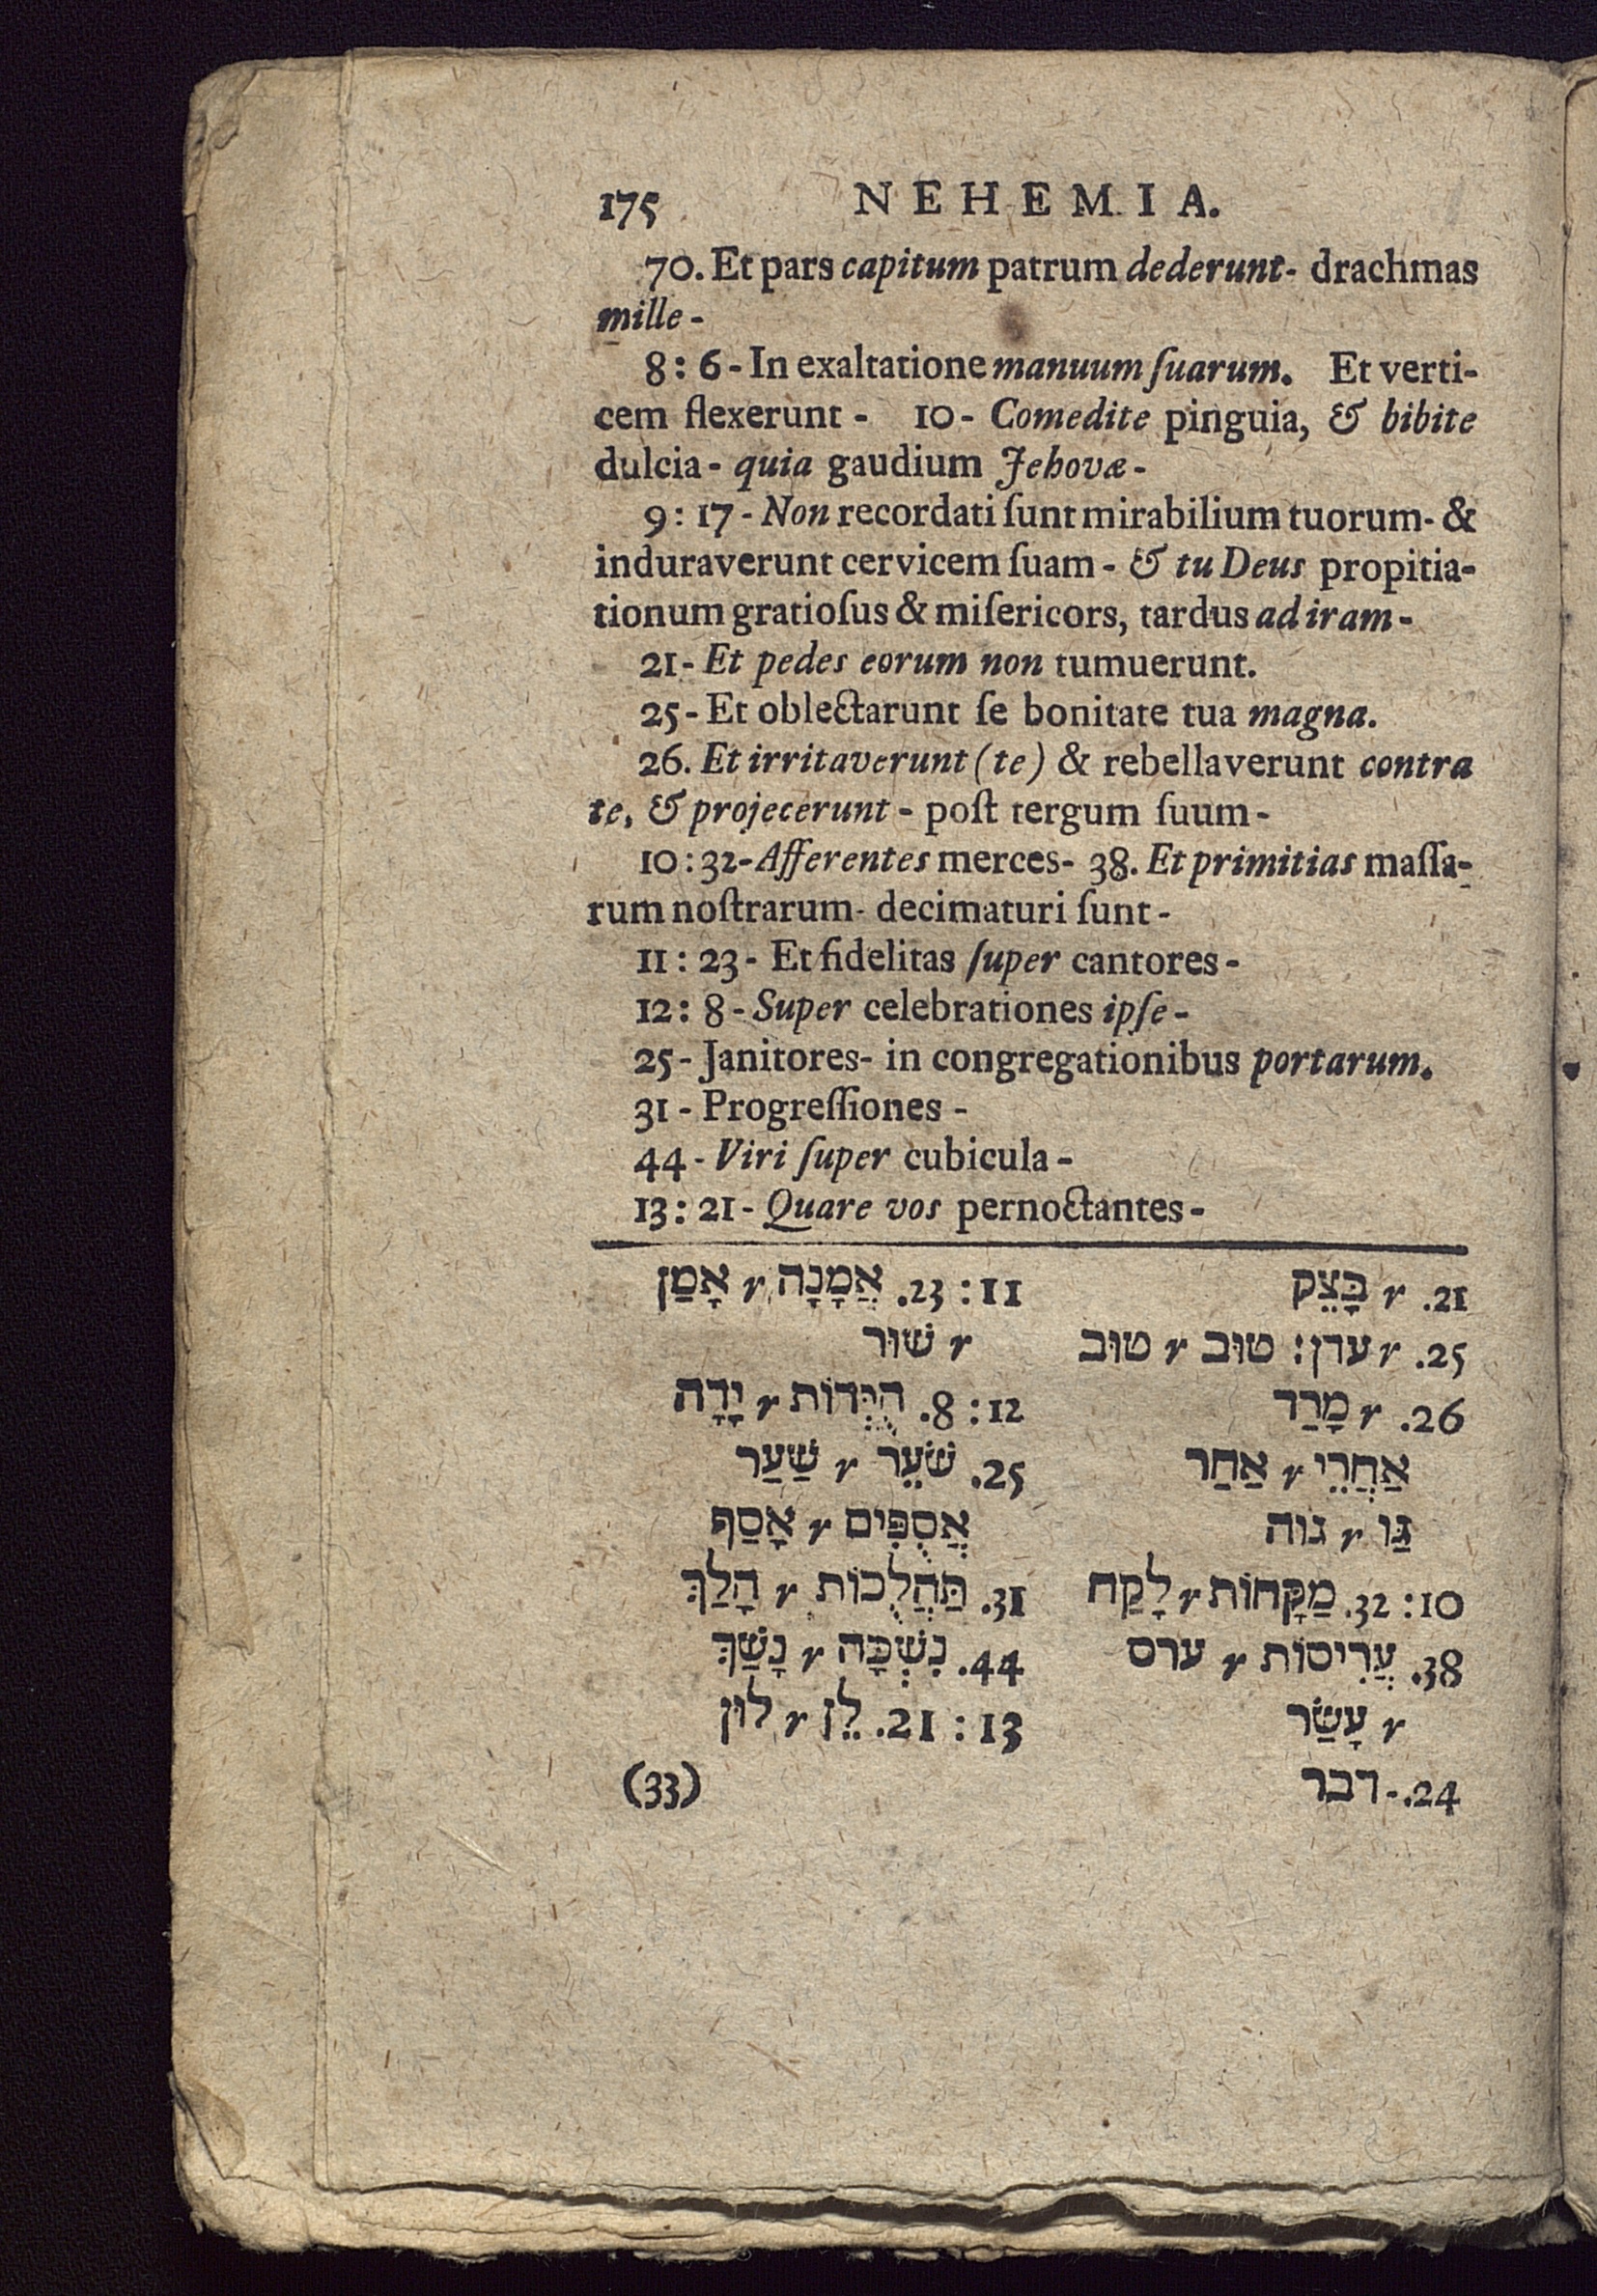 175 NEHEMIA.
70. Et pars capitum patrum dederunt- drachmas
mille -
8: 6 - In exaltatione manuum ſuarum. Et verti-
cem flexerunt - 10 - Comedite pinguia, & bibite
dulcia - quia gaudium Jehovæ -
9: 17 - Non recordati ſunt mirabilium tuorum- &
induraverunt cervicem ſuam - & tu Deus propitia-
tionum gratioſus & miſericors, tardus ad iram -
21 - Et pedes eorum non tumuerunt.
25 - Et oblectarunt ſe bonitate tua magna.
26. Et irritaverunt (te) & rebellaverunt contra
te, & projecerunt - poſt tergum ſuum -
10: 32 - Afferentes merces- 38. Et primitias maſſa-
rum noſtrarum- decimaturi ſunt -
11: 23 - Et fidelitas ſuper cantores -
12: 8 - Super celebrationes ipſe -
25 - Janitores- in congregationibus portarum.
31 - Progreſſiones -
44 - Viri ſuper cubicula -
13: 21 - Quare vos pernoctantes -
21. r בָּצֵק
25. r עדן: טוּב r טוֹב
26. r מָרַד
אַחֲרֵי r אַחַר
גַּו r גוה
10: 32. מַקָּחוֹת r לָקַח
38. עֲרִיסוֹת r ערס
r עָשַׂר
24. - דבר
11: 23. אֲמָנָה r אָמַן
r שׁוּר
12: 8. הֻיְּדוֹת r יָדָה
25. שֹׁעֵר r שַׁעַר
אֲסֻפִּים r אָסַף
31. תַּהֲלֻכוֹת r הָלַךְ
44. נִשְׁכָּה r נָשַׁךְ
13: 21. לֵן r לוּן
(33)